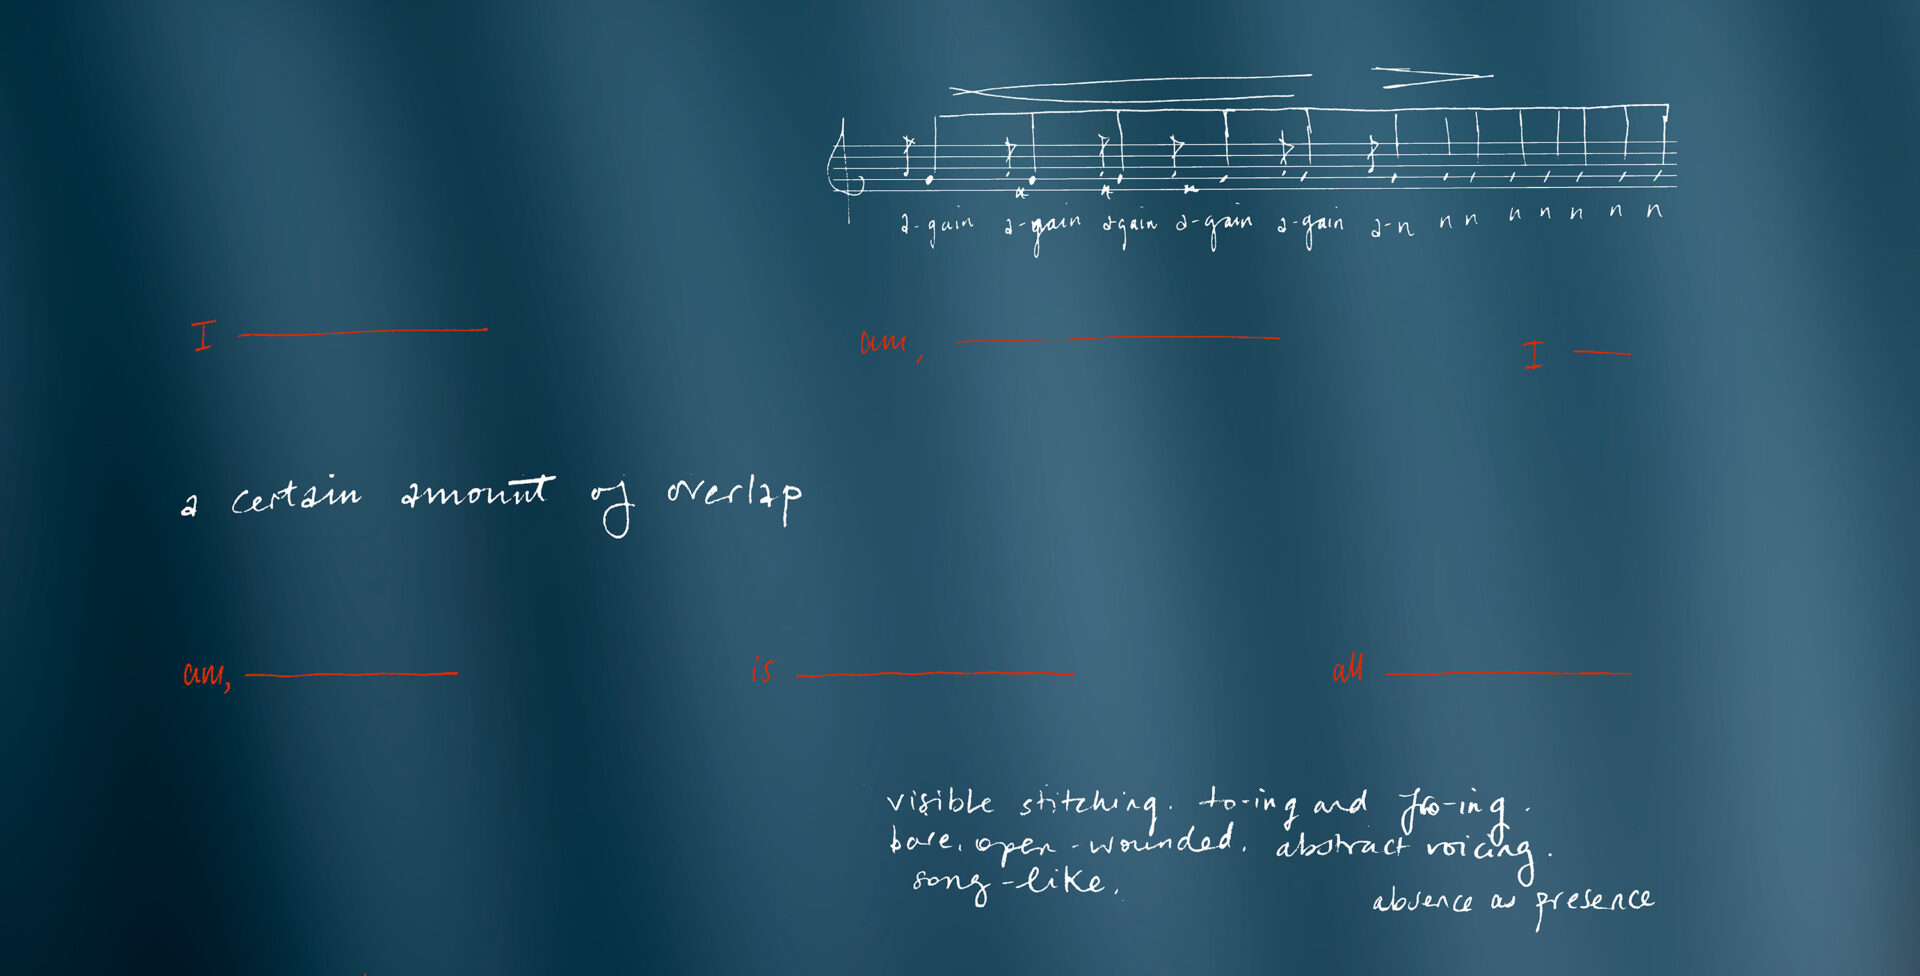 a-gain a-gain again a-gain a-gain a-n n n n n n n n
I am, I
a certain amount of overlap
am, is all
visible stitching. to-ing and fro-ing.
bare. open-wounded. abstract voicing.
song-like.
absence as presence